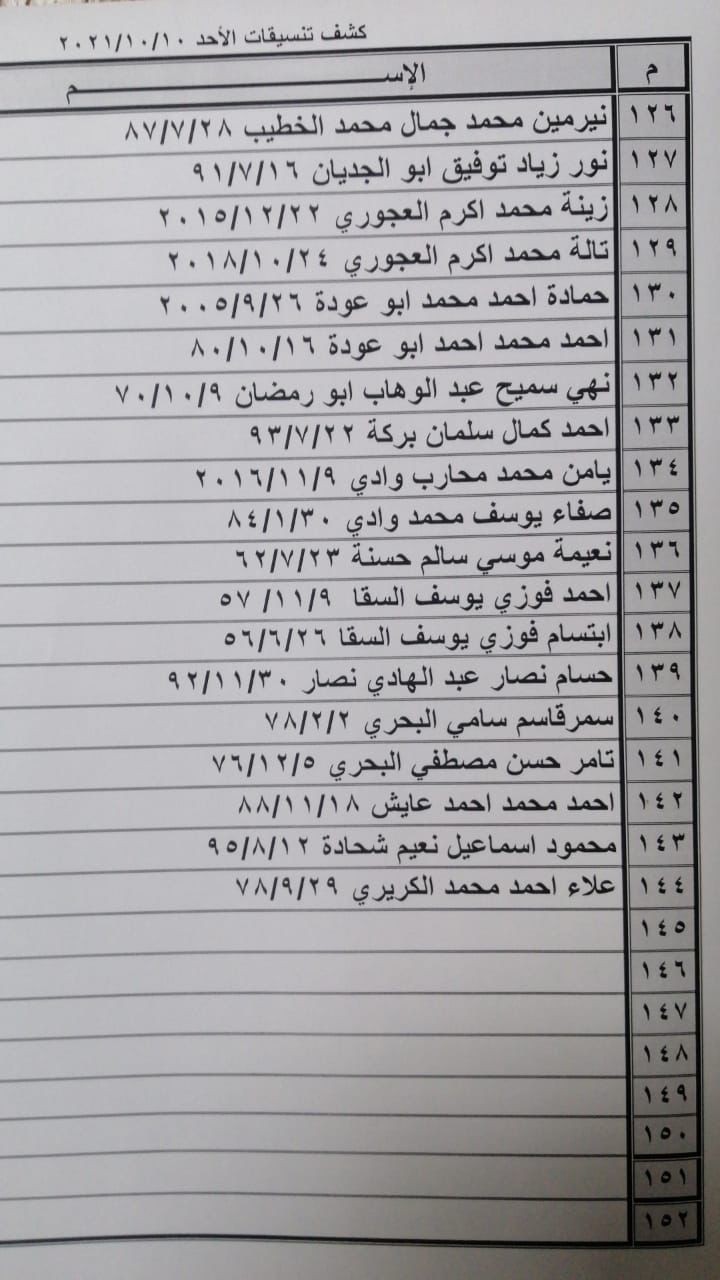 كشف تنسيقات الأحد ٢٠٢١/١٠/١٠
م الإســــــــــم
١٢٦ نيرمين محمد جمال محمد الخطيب ٨٧/٧/٢٨
١٢٧ نور زياد توفيق ابو الجديان ٩١/٧/١٦
١٢٨ زينة محمد اكرم العجوري ٢٠١٥/١٢/٢٢
١٢٩ تالة محمد اكرم العجوري ٢٠١٨/١٠/٢٤
١٣٠ حمادة احمد محمد ابو عودة ٢٠٠٥/٩/٢٦
١٣١ احمد محمد احمد ابو عودة ٨٠/١٠/١٦
١٣٢ نهي سميح عبد الوهاب ابو رمضان ٧٠/١٠/٩
١٣٣ احمد كمال سلمان بركة ٩٣/٧/٢٢
١٣٤ يامن محمد محارب وادي ٢٠١٦/١١/٩
١٣٥ صفاء يوسف محمد وادي ٨٤/١/٣٠
١٣٦ نعيمة موسي سالم حسنة ٦٢/٧/٢٣
١٣٧ احمد فوزي يوسف السقا ٥٧ /١١/٩
١٣٨ ابتسام فوزي يوسف السقا ٥٦/٦/٢٦
١٣٩ حسام نصار عبد الهادي نصار ٩٢/١١/٣٠
١٤٠ سمرقاسم سامي البحري ٧٨/٢/٢
١٤١ تامر حسن مصطفي البحري ٧٦/١٢/٥
١٤٢ احمد محمد احمد عايش ٨٨/١١/١٨
١٤٣ محمود اسماعيل نعيم شحادة ٩٥/٨/١٢
١٤٤ علاء احمد محمد الكريري ٧٨/٩/٢٩
١٤٥
١٤٦
١٤٧
١٤٨
١٤٩
١٥٠
١٥١
١٥٢